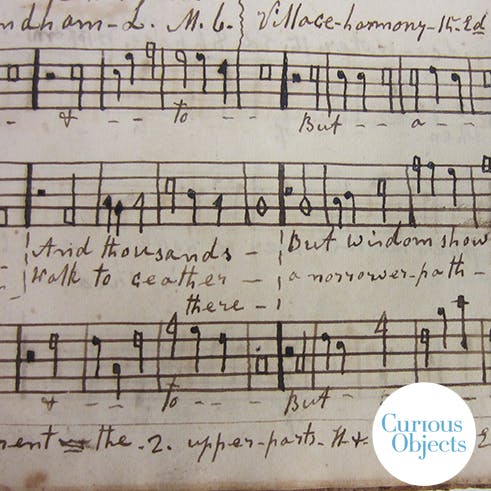 ndham - L. M. b. } Village-harmony - 15. Ed
- & - - to - - But - - a - - -
And thousands - But wisdom show
Walk to geather - a norrower-path -
there -
& - - to - - But -
ment the - 2. upper-parts - th &
Curious
Objects